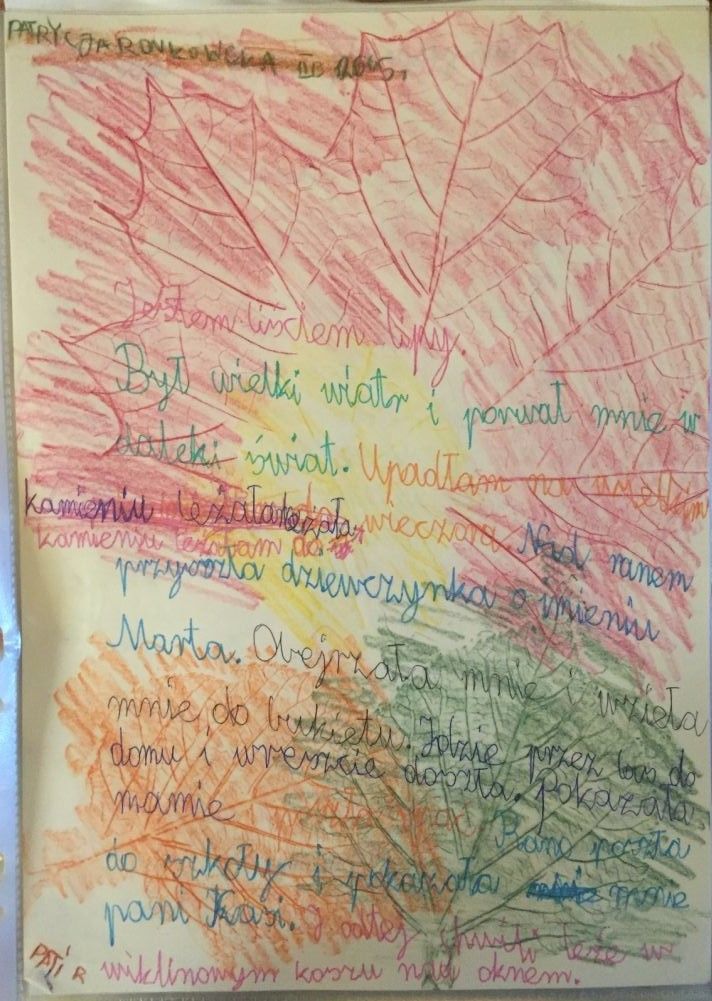 PATRYCJA RONKOWSKA III B 2015r.
Jestem liściem lipy.
Był wielki wiatr i porwał mnie w
daleki świat. Upadłam na wielkim
kamieniu leżałam do wieczora. Nad ranem
kamieniu leżałam do
przyszła dziewczynka o imieniu
Marta. Obejrzała mnie i wzięła
mnie do bukietu. Idzie przez las do
domu i wreszcie doszła. Pokazała
mamie i poszła spać. Rano poszła
do szkoły i pokazała mnie
pani Kasi. I odtej chwili leże w
PATI R wiklinowym koszu nad oknem.